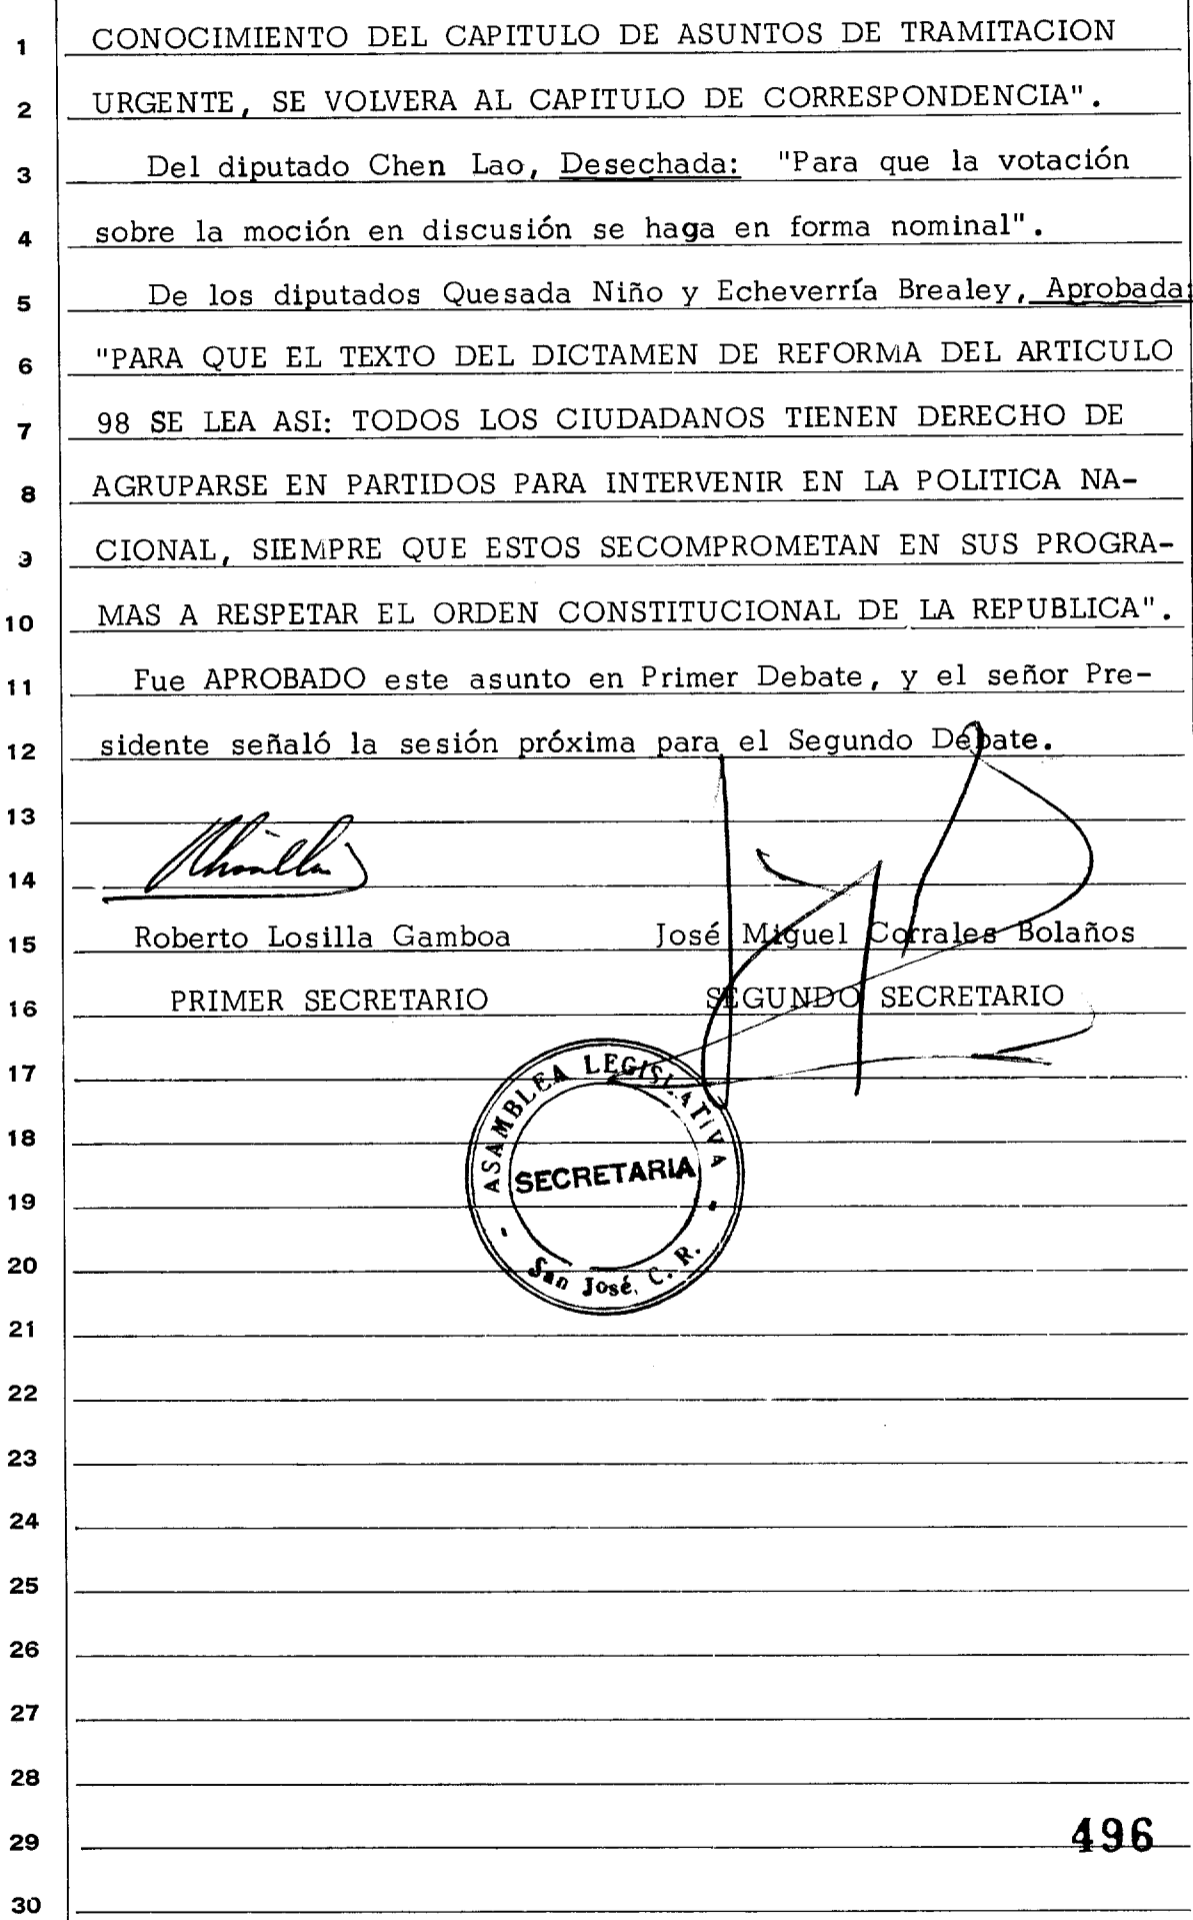 1 CONOCIMIENTO DEL CAPITULO DE ASUNTOS DE TRAMITACION
2 URGENTE, SE VOLVERA AL CAPITULO DE CORRESPONDENCIA".
3 Del diputado Chen Lao, Desechada: "Para que la votación
4 sobre la moción en discusión se haga en forma nominal".
5 De los diputados Quesada Niño y Echeverría Brealey, Aprobada:
6 "PARA QUE EL TEXTO DEL DICTAMEN DE REFORMA DEL ARTICULO
7 98 SE LEA ASI: TODOS LOS CIUDADANOS TIENEN DERECHO DE
8 AGRUPARSE EN PARTIDOS PARA INTERVENIR EN LA POLITICA NA-
9 CIONAL, SIEMPRE QUE ESTOS SECOMPROMETAN EN SUS PROGRA-
10 MAS A RESPETAR EL ORDEN CONSTITUCIONAL DE LA REPUBLICA".
11 Fue APROBADO este asunto en Primer Debate, y el señor Pre-
12 sidente señaló la sesión próxima para el Segundo Debate.
13
14
15 Roberto Losilla Gamboa José Miguel Corrales Bolaños
16 PRIMER SECRETARIO SEGUNDO SECRETARIO
17
ASAMBLEA LEGISLATIVA
18
SECRETARIA
19
20
San José, C. R.
21
22
23
24
25
26
27
28
29 496
30